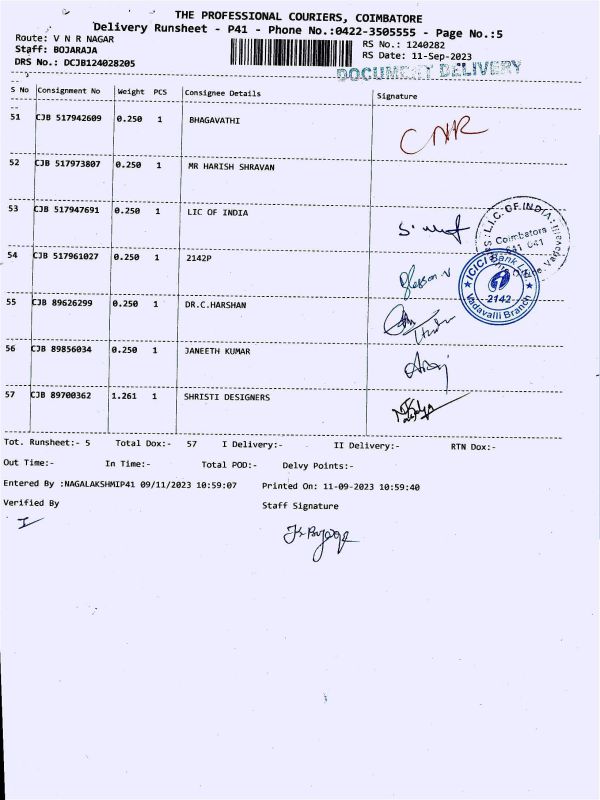 THE PROFESSIONAL COURIERS, COIMBATORE
Delivery Runsheet - P41 - Phone No.:0422-3505555 - Page No.:5
Route: V N R NAGAR
RS No.: 1240282
Staff: BOJARAJA
RS Date: 11-Sep-2023
DRS No.: DCJB124028205
DOCUMENT DELIVERY
S No Consignment No Weight PCS Consignee Details Signature
51 CJB 517942609 0.250 1 BHAGAVATHI
52 CJB 517973807 0.250 1 MR HARISH SHRAVAN
53 CJB 517947691 0.250 1 LIC OF INDIA
L.I.C. OF INDIA
Coimbatore
641 041
54 CJB 517961027 0.250 1 2142P
ICICI Bank Ltd
2142
Vadavalli Branch
55 CJB 89626299 0.250 1 DR.C.HARSHAN
56 CJB 89856034 0.250 1 JANEETH KUMAR
57 CJB 89700362 1.261 1 SHRISTI DESIGNERS
Tot. Runsheet:- 5 Total Dox:- 57 I Delivery:- II Delivery:- RTN Dox:-
Out Time:- In Time:- Total POD:- Delvy Points:-
Entered By :NAGALAKSHMIP41 09/11/2023 10:59:07 Printed On: 11-09-2023 10:59:40
Verified By Staff Signature